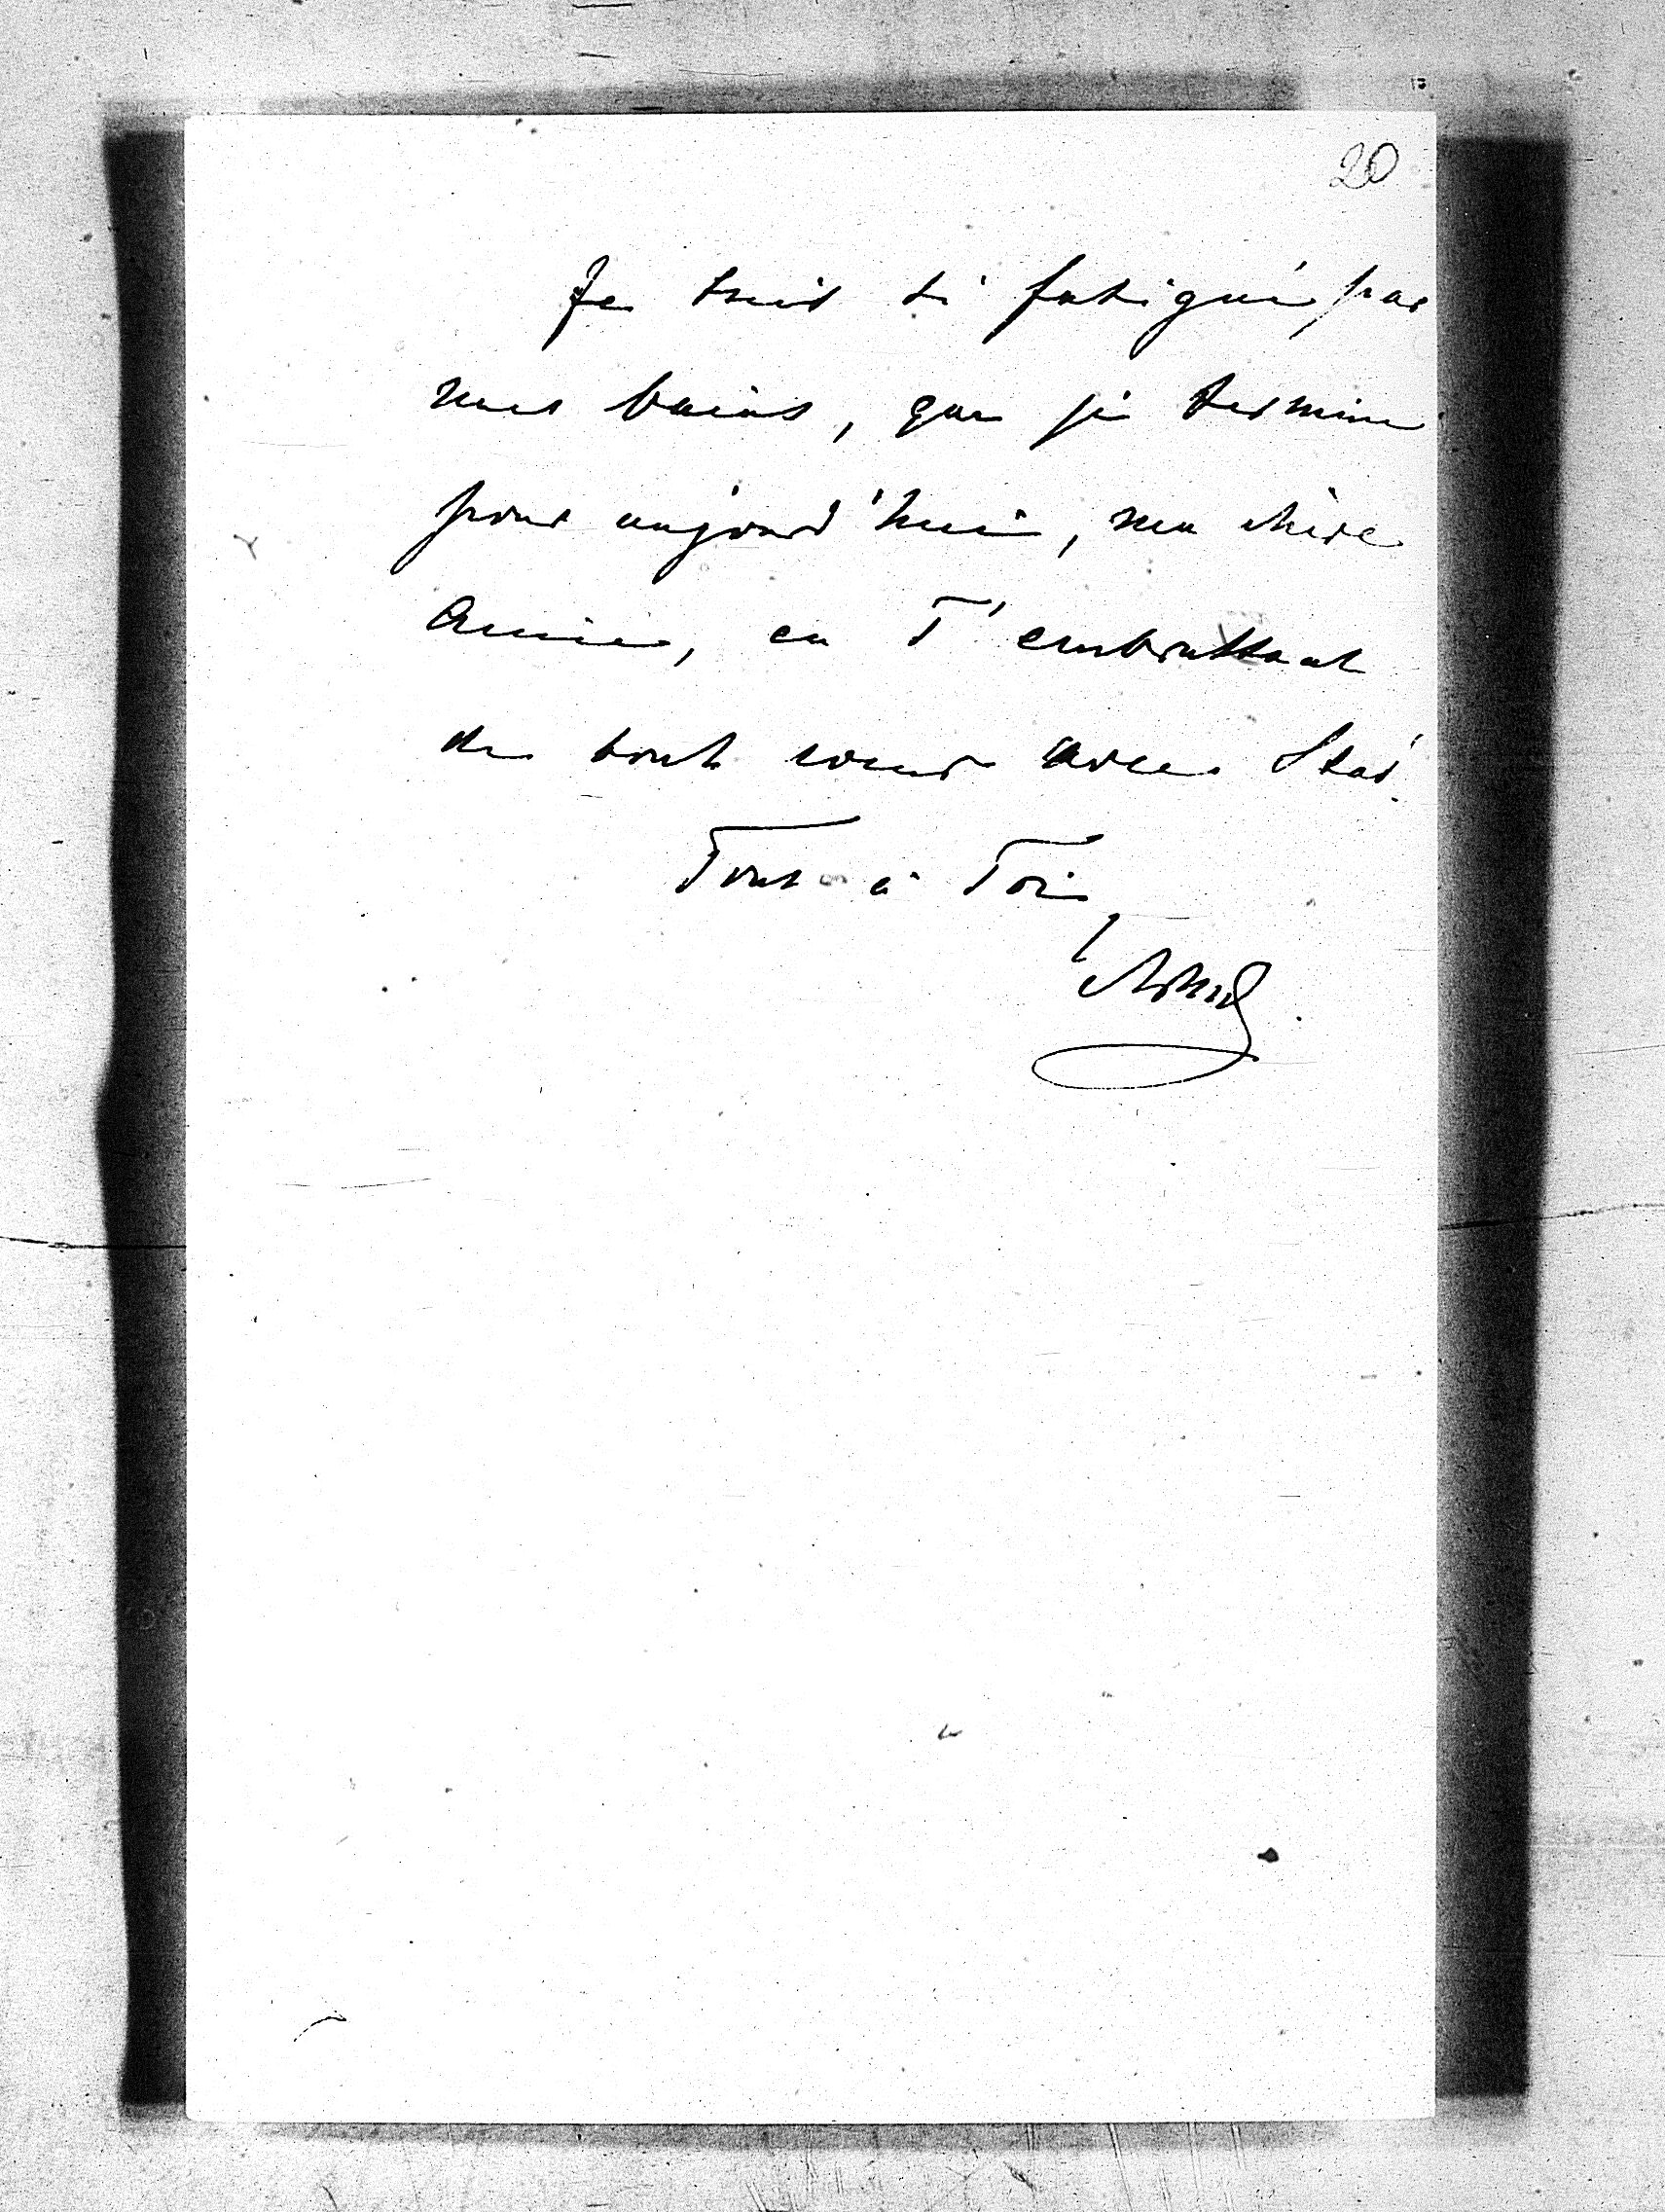 20
Je suis si fatigué par
mes bains, que je termine
pour aujourd'hui, ma chère
Amie, en T'embrassant
de tout coeur avec Stas.
Tout à Toi